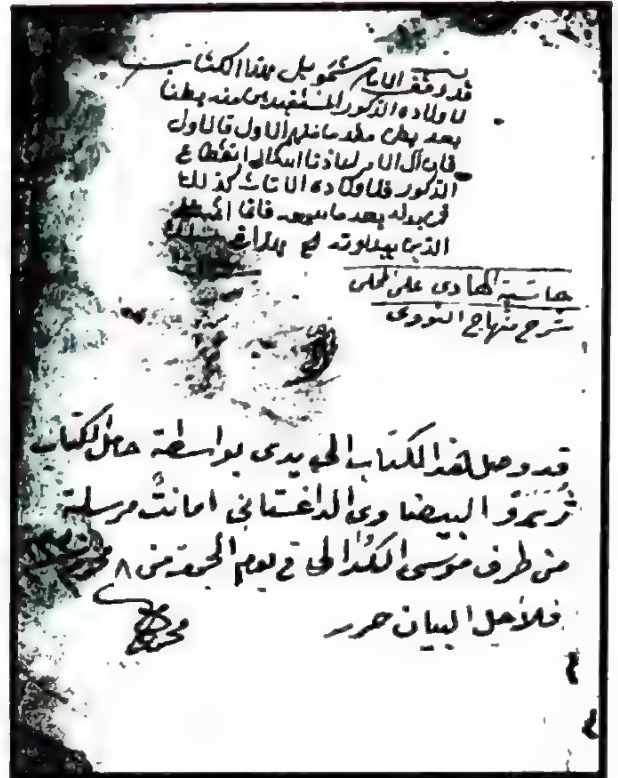 قد وقف الامام شمويل هذا الكتاب
لاولاده الذكور المستفيدين منه بطنا
بعد بطن مقدما منهم الاول فالاول
فان آل الامر لعاذنا الله الى انقطاع
الذكور فلاولاده الاناث كذلك
فمن بدله بعد ما سمعه فانما اثمه على
الذين يبدلونه
حاشية على المحلى
شرح منهاج النووى
قد وصل هذا الكتاب الى يدى بواسطة حامل الكتاب
البيضاوى الداغستانى امانت مرسلة
من طرف موسى الكُدالى فى يوم الجمعة من ٨ محرم
فلاجل البيان حرر